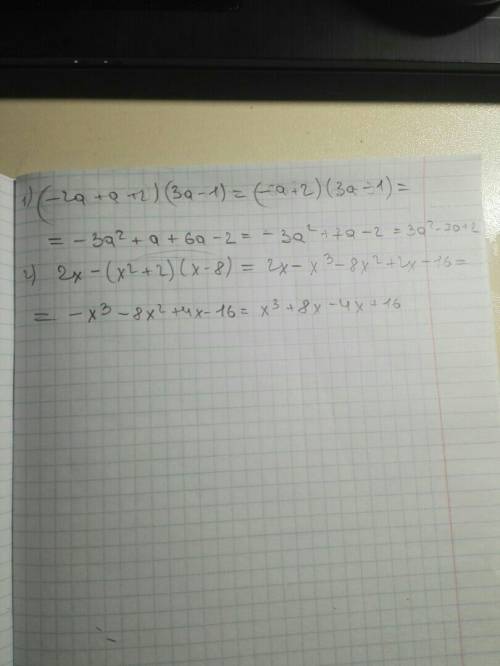 1) (-2a + a + 2) (3a - 1) = (-a + 2) (3a - 1) =
= - 3a² + a + 6a - 2 = - 3a² + 7a - 2 = 3a² - 7a + 2
2) 2x - (x² + 2) (x - 8) = 2x - x³ - 8x² + 2x - 16 =
= - x³ - 8x² + 4x - 16 = x³ + 8x - 4x + 16